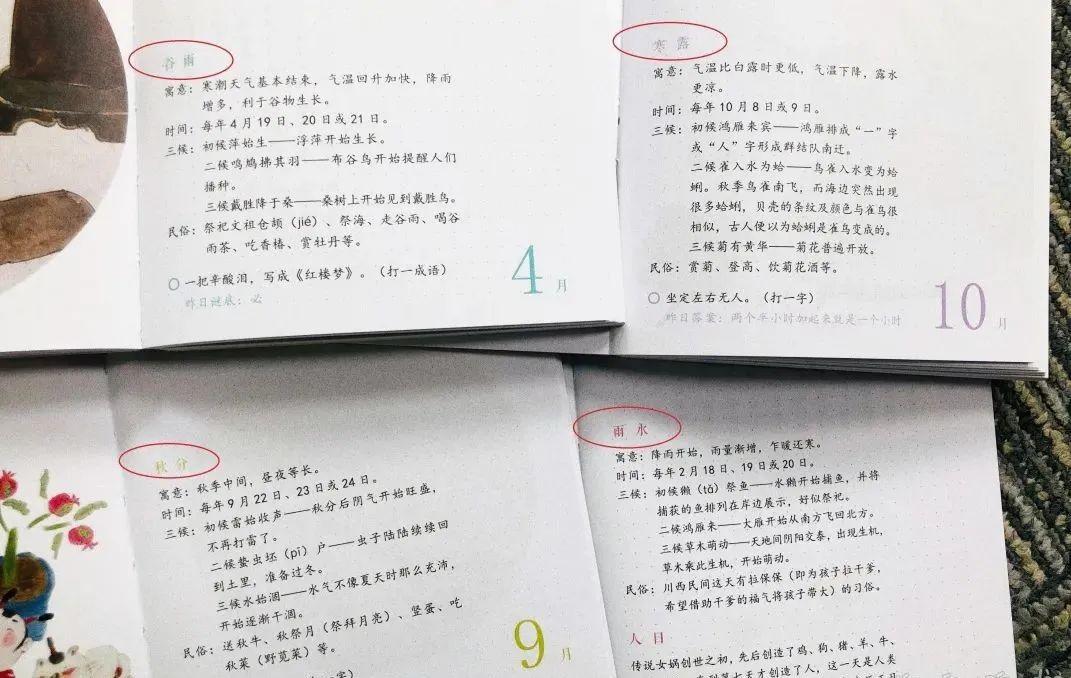 谷雨
寓意：寒潮天气基本结束，气温回升加快，降雨
增多，利于谷物生长。
时间：每年4月19日、20日或21日。
三候：初候萍始生——浮萍开始生长。
二候鸣鸠拂其羽——布谷鸟开始提醒人们
播种。
三候戴胜降于桑——桑树上开始见到戴胜鸟。
民俗：祭祀文祖仓颉（jié）、祭海、走谷雨、喝谷
雨茶、吃香椿、赏牡丹等。
一把辛酸泪，写成《红楼梦》。（打一成语）
昨日谜底：必
4月
寒露
寓意：气温比白露时更低，气温下降，露水
更凉。
时间：每年10月8日或9日。
三候：初候鸿雁来宾——鸿雁排成“一”字
或“人”字形成群结队南迁。
二候雀入水为蛤——鸟雀入水变为蛤
蜊。秋季鸟雀南飞，而海边突然出现
很多蛤蜊，贝壳的条纹及颜色与雀鸟很
相似，古人便以为蛤蜊是雀鸟变成的。
三候菊有黄华——菊花普遍开放。
民俗：赏菊、登高、饮菊花酒等。
坐定左右无人。（打一字）
昨日答案：两个半小时加起来就是一个小时
10月
秋分
寓意：秋季中间，昼夜等长。
时间：每年9月22日、23日或24日。
三候：初候雷始收声——秋分后阴气开始旺盛，
不再打雷了。
二候蛰虫坯（pī）户——虫子陆陆续续回
到土里，准备过冬。
三候水始涸——水气不像夏天时那么充沛，
开始逐渐干涸。
民俗：送秋牛、秋祭月（祭拜月亮）、竖蛋、吃
秋菜（野苋菜）等。
9月
雨水
寓意：降雨开始，雨量渐增，乍暖还寒。
时间：每年2月18日、19日或20日。
三候：初候獭（tǎ）祭鱼——水獭开始捕鱼，并将
捕获的鱼排列在岸边展示，好似祭祀。
二候鸿雁来——大雁开始从南方飞回北方。
三候草木萌动——天地间阴阳交泰，出现生机，
草木乘此生机，开始萌动。
民俗：川西民间这天有拉保保（即为孩子拉干爹，
希望借助干爹的福气将孩子带大）的习俗。
人日
传说女娲创世之初，先后创造了鸡、狗、猪、羊、牛、
第七天才创造了人，这一天是人类